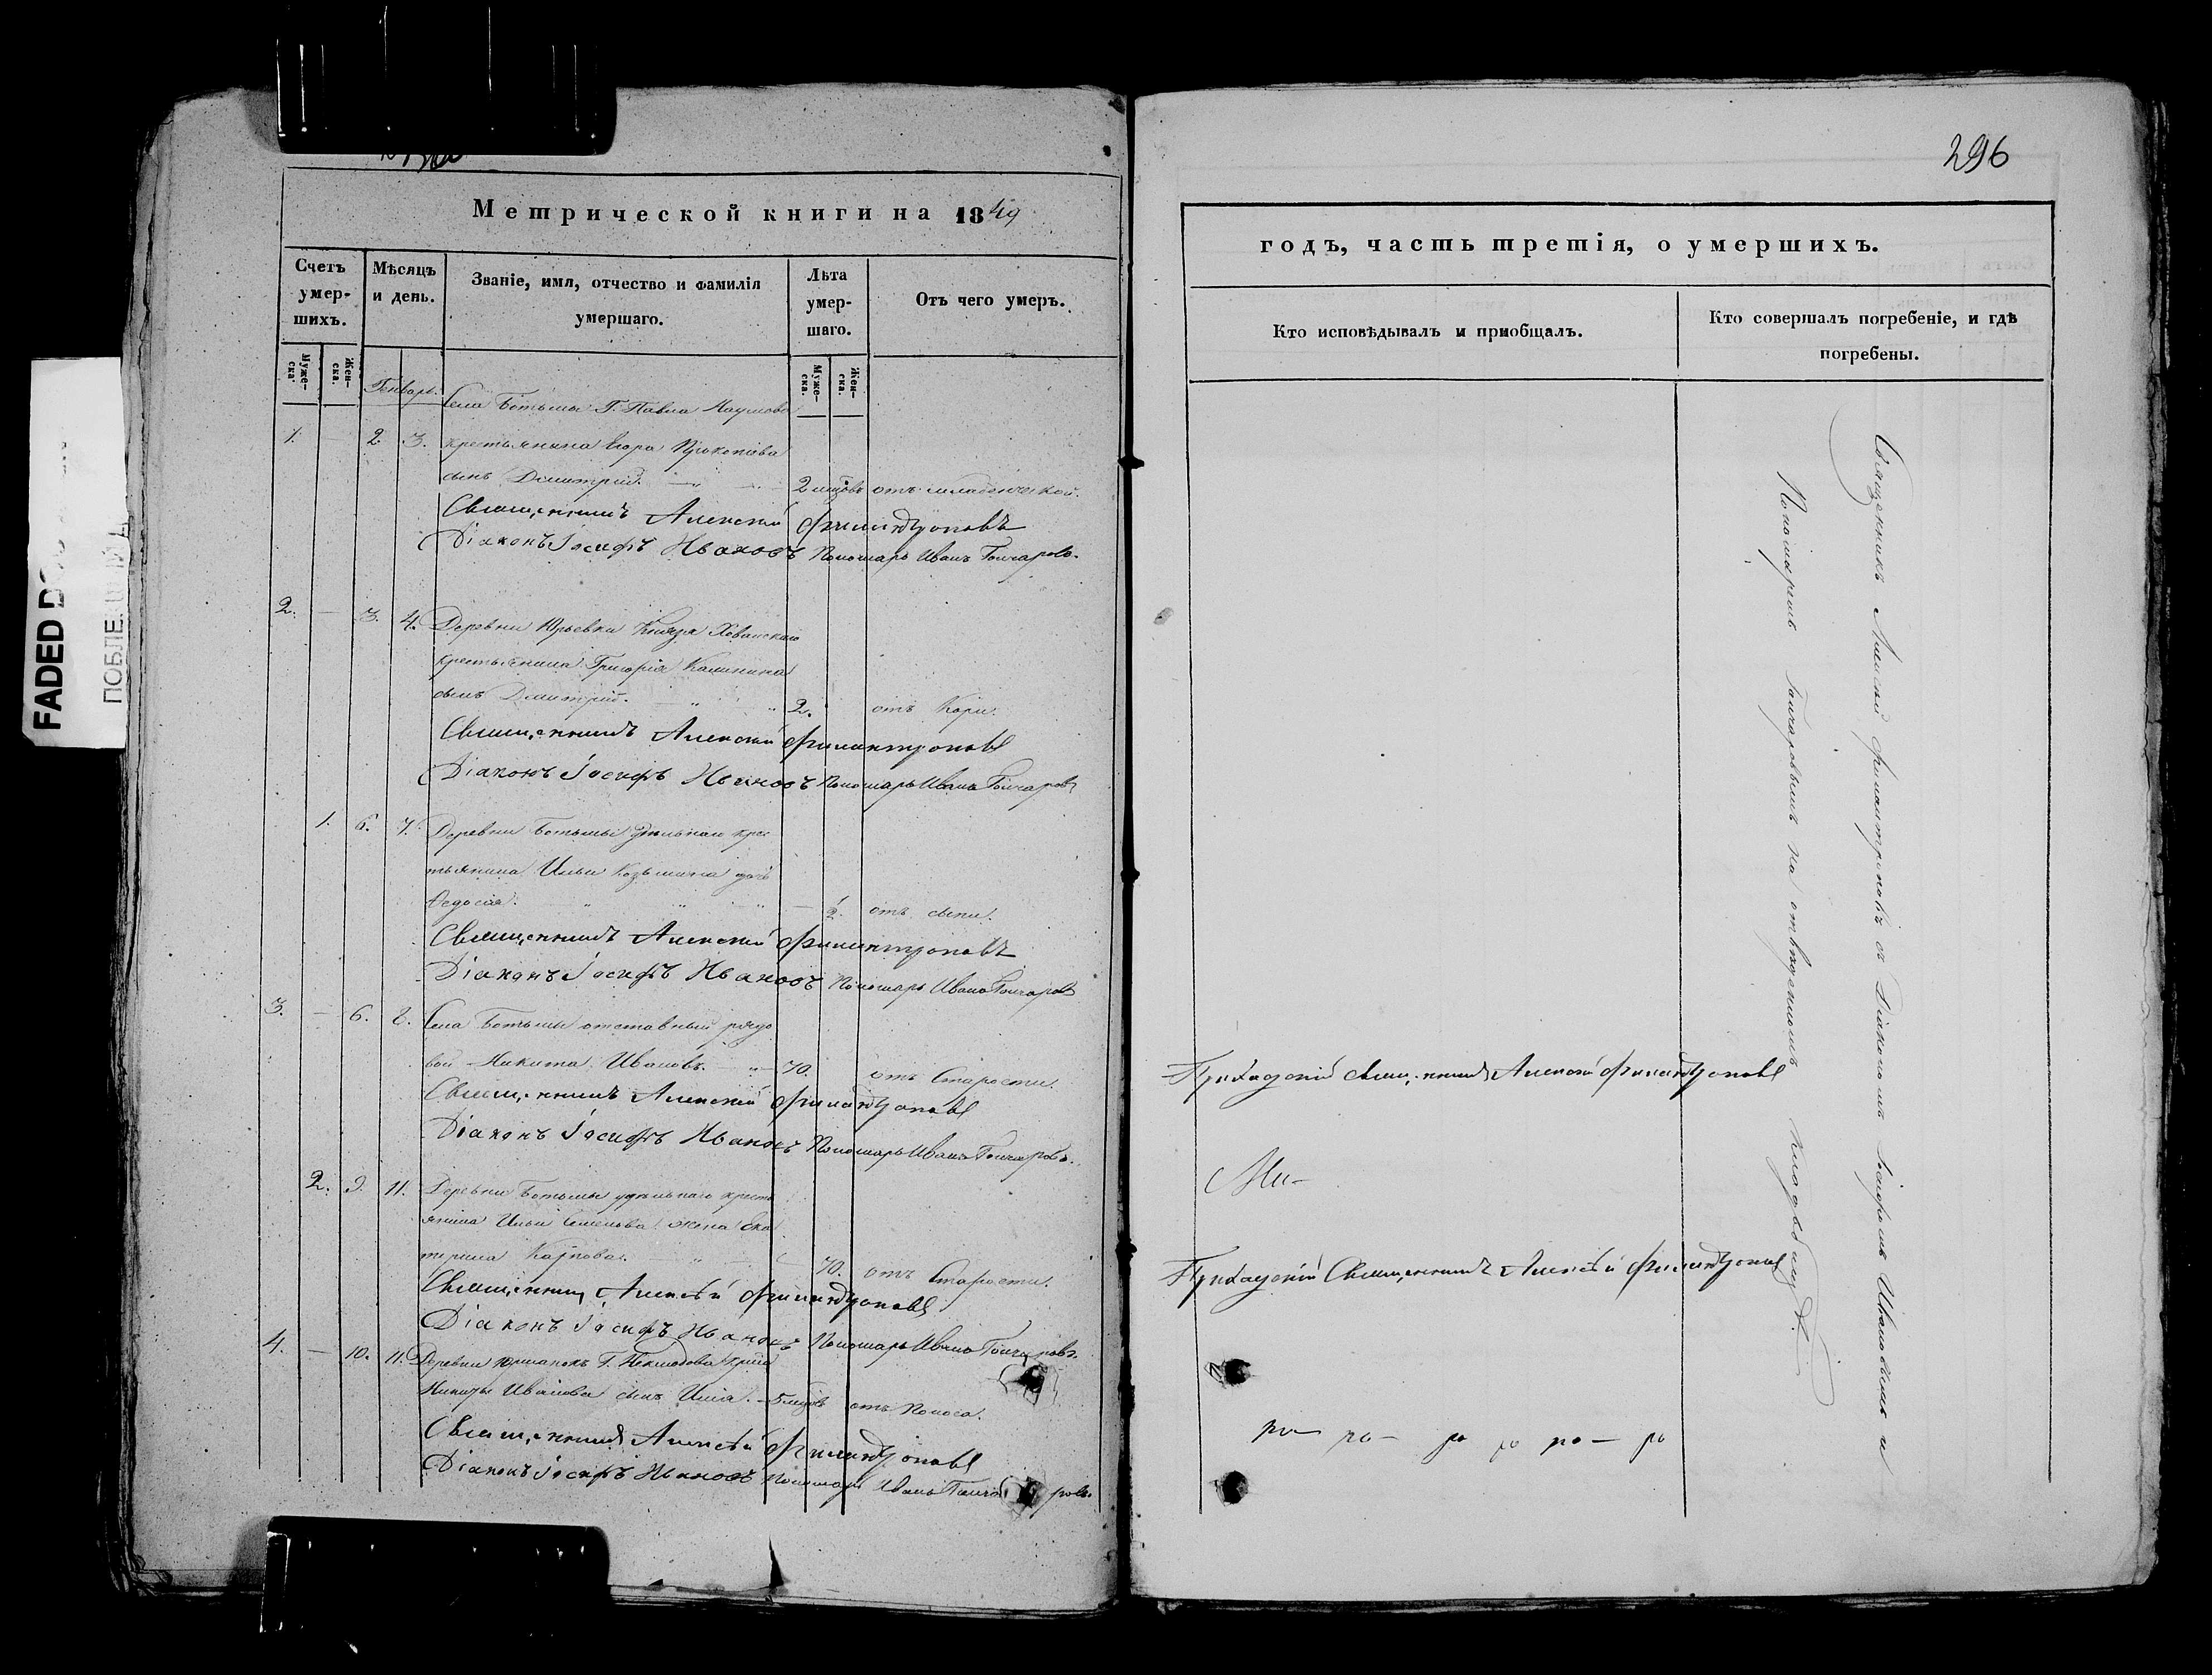 296
Метрической книги на 1849
Счетъ умер-шихъ.
Мѣсяцъ и день.
Званіе, имя, отчество и фамилія умершаго.
Лѣта умер-шаго.
Отъ чего умеръ.
Муже-ска.
Жен-ска.
Муже-ска.
Жен-ска.
Генварь.
Села Ботьмы Г. Павла Наумова
1. — 2. 3. крестьянина Егора Прокопіева
сынъ Димитрій. 2 мцовъ отъ младенческой.
Священникъ Алексій Филантроповъ
Діаконъ Іосифъ Ивановъ Пономарь Иванъ Гончаровъ.
2. — 3. 4. Деревни Юрьевки Князя Хованскаго
крестьянина Григорія Калинина
сынъ Димитрій. 2. отъ Кори.
Священникъ Алексій Филантроповъ
Діаконъ Іосифъ Ивановъ Пономарь Иванъ Гончаровъ
1. 6. 7. Деревни Ботьмы удѣльнаго крес
тьянина Ильи Козьмина дочь
Ѳедосія. 1/2. отъ сыпи.
Священникъ Алексій Филантроповъ
Діаконъ Іосифъ Ивановъ Пономарь Иванъ Гончаровъ
3. — 6. 8. Села Ботьмы отставный рядо
вой Никита Ивановъ. 70. отъ Старости.
Священникъ Алексій Филантроповъ
Діаконъ Іосифъ Ивановъ Пономарь Иванъ Гончаровъ.
2. 9. 11. Деревни Ботьмы удѣльнаго кресть
янина Ильи Семенова жена Ека
терина Карпова. 70. отъ Старости.
Священникъ Алексѣй Филантроповъ
Діаконъ Іосифъ Ивановъ Пономарь Иванъ Гончаровъ.
4. — 10. 11. Деревни
Никиты Иванова сынъ Илія. 5 мцовъ отъ Поноса.
Священникъ Алексѣй Филантроповъ
Діаконъ Іосифъ Ивановъ Пономарь Иванъ Гончаровъ.
годъ, часть третія, о умершихъ.
Кто исповѣдывалъ и пріобщалъ.
Кто совершалъ погребеніе, и гдѣ погребены.
Священникъ Алексій Филантроповъ съ Діакономъ Іосифомъ Ивановымъ и
Пономаремъ Гончаровымъ на отведенномъ кладбищѣ.
Приходскій священникъ Алексій Филантроповъ
Приходскій Священникъ Алексѣй Филантроповъ
FADED
ПОБЛЕ